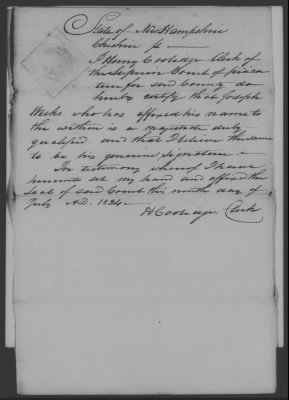 State of New Hampshire
Cheshire ss —
I Henry Coolidge Clerk of
the Superior Court of judica
ture for said County do
hereby certify that Joseph
Weeks who has affixed his name to
the within is a magistrate duly
qualified and that I believe the same
to be his genuine signature —
In testimony whereof I have
hereunto set my hand and affixed the
seal of said Court this ninth day of
July A.D. 1834 —
H Coolidge Clerk